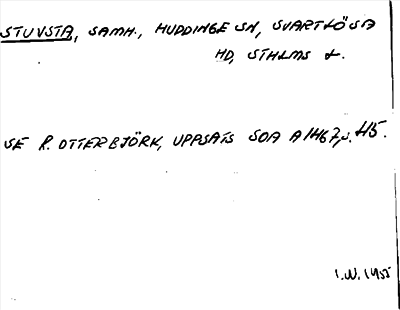 STUVSTA, SAMH., HUDDINGE SN, SVARTLÖSA
HD, STHLMS L.
SE R. OTTERBJÖRK, UPPSATS SOA A1467, s. 45.
1955